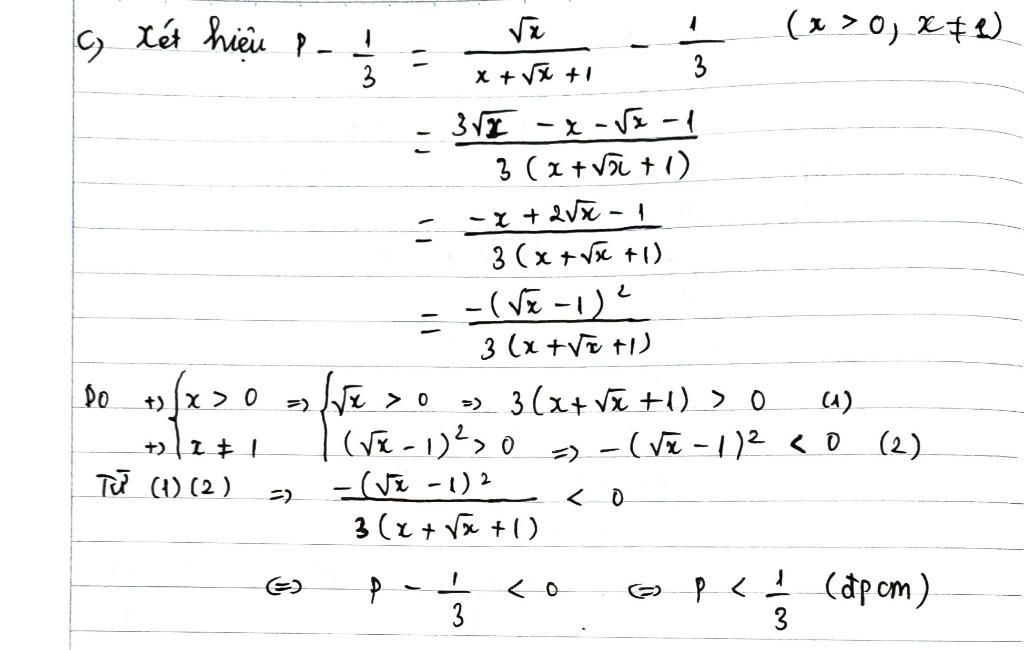 c, Xét hiệu P - 1/3 = √x/(x + √x + 1) - 1/3 (x > 0, x ≠ 1)
= (3√x - x - √x - 1)/(3(x + √x + 1))
= (-x + 2√x - 1)/(3(x + √x + 1))
= (-(√x - 1)²)/(3(x + √x + 1))
Do +) { x > 0 => { √x > 0 => 3(x + √x + 1) > 0 (1)
+) { x ≠ 1 { (√x - 1)² > 0 => -(√x - 1)² < 0 (2)
Từ (1) (2) => (-(√x - 1)²)/(3(x + √x + 1)) < 0
<=> P - 1/3 < 0 <=> P < 1/3 (đpcm)